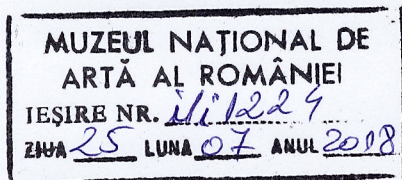 MUZEUL NAȚIONAL DE
ARTĂ AL ROMÂNIEI
IEȘIRE NR.
ZIUA 25 LUNA 07 ANUL 2018